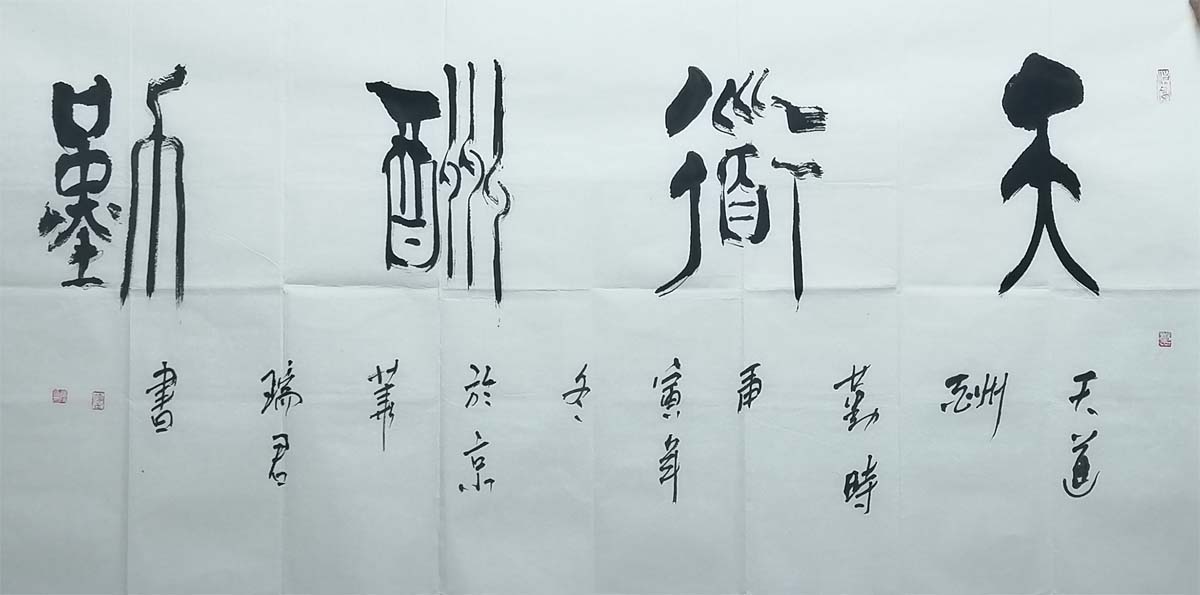 天道酬勤
天道
酬
勤時
庚
寅年
冬
於京
華
瑞君
書